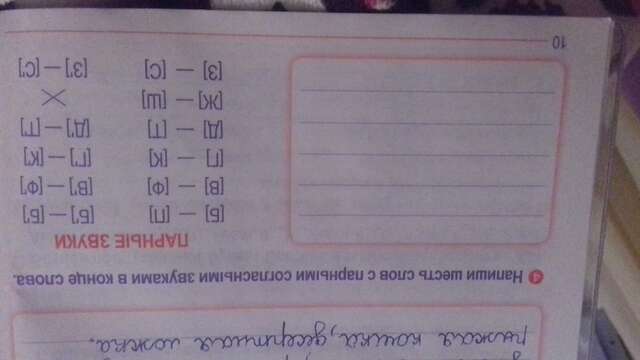 рыжая кошка, десертная ложка.
4 Напиши шесть слов с парными согласными звуками в конце слова.
ПАРНЫЕ ЗВУКИ
[Б] — [П] [Б'] — [Б']
[В] — [Ф] [В'] — [Ф']
[Г] — [К] [Г'] — [К']
[Д] — [Т] [Д'] — [Т']
[Ж] — [Ш] ×
[З] — [С] [З'] — [С']
10